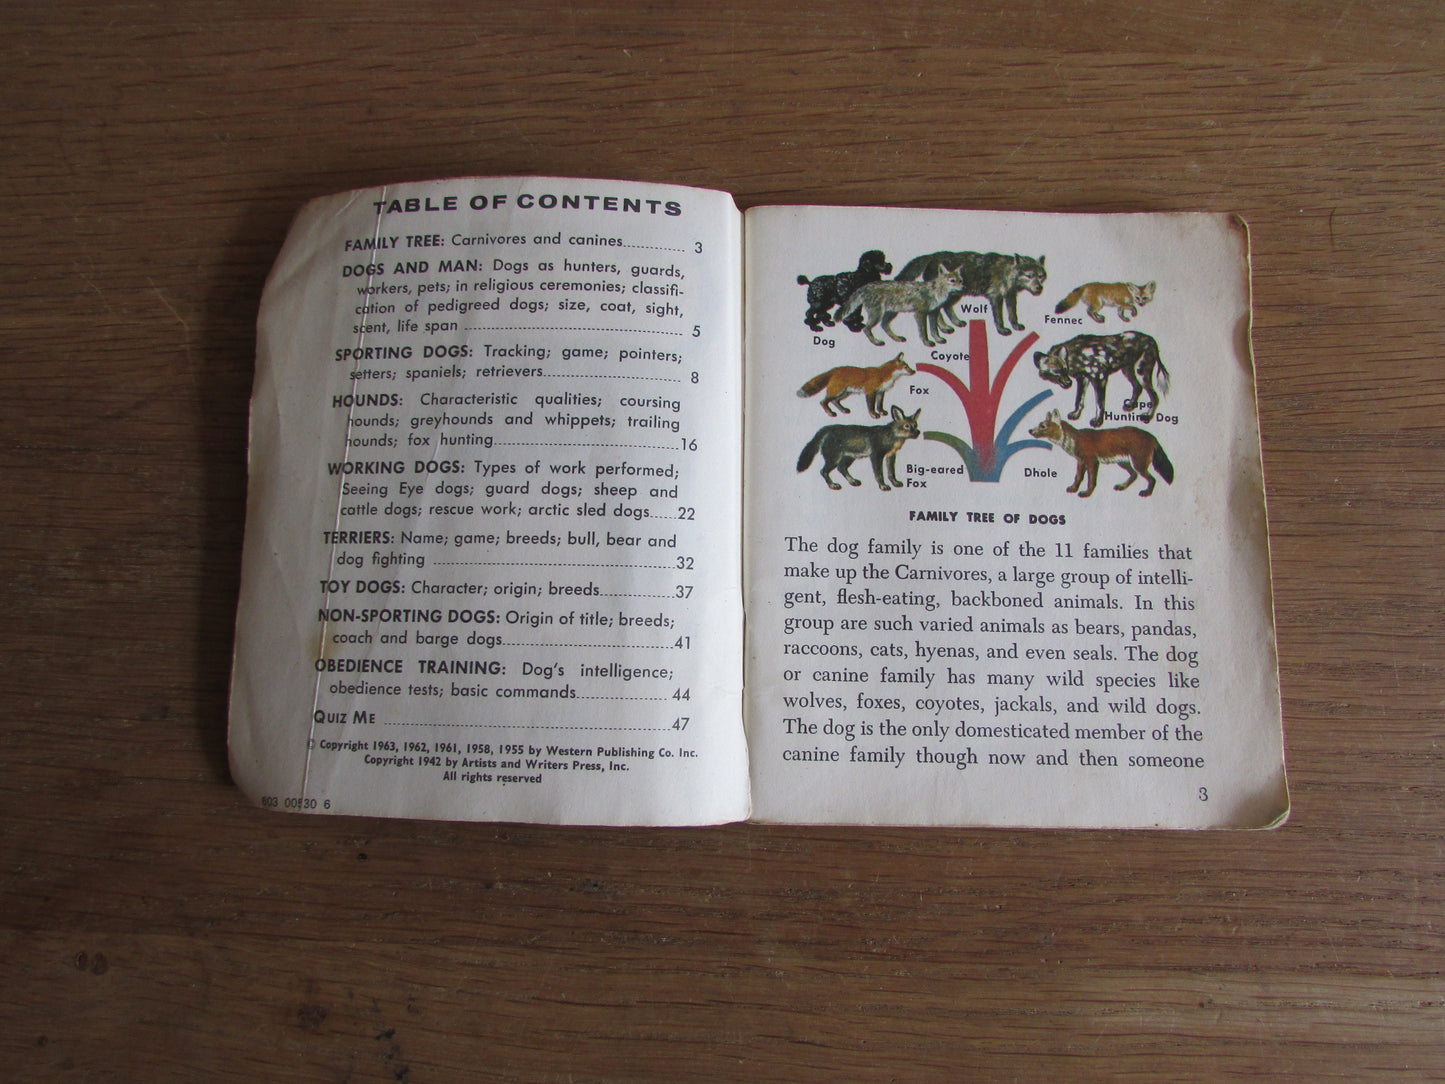 TABLE OF CONTENTS
FAMILY TREE: Carnivores and canines............ 3
DOGS AND MAN: Dogs as hunters, guards,
workers, pets; in religious ceremonies; classifi-
cation of pedigreed dogs; size, coat, sight,
scent, life span ................................ 5
SPORTING DOGS: Tracking; game; pointers;
setters; spaniels; retrievers.................... 8
HOUNDS: Characteristic qualities; coursing
hounds; greyhounds and whippets; trailing
hounds; fox hunting..............................16
WORKING DOGS: Types of work performed;
Seeing Eye dogs; guard dogs; sheep and
cattle dogs; rescue work; arctic sled dogs......22
TERRIERS: Name; game; breeds; bull, bear and
dog fighting ....................................32
TOY DOGS: Character; origin; breeds.............37
NON-SPORTING DOGS: Origin of title; breeds;
coach and barge dogs.............................41
OBEDIENCE TRAINING: Dog's intelligence;
obedience tests; basic commands................. 44
QUIZ ME .........................................47
© Copyright 1963, 1962, 1961, 1958, 1955 by Western Publishing Co. Inc.
Copyright 1942 by Artists and Writers Press, Inc.
All rights reserved
603 00530 6
Dog
Coyote
Wolf
Fennec
Fox
Cape
Hunting Dog
Big-eared
Fox
Dhole
FAMILY TREE OF DOGS
The dog family is one of the 11 families that
make up the Carnivores, a large group of intelli-
gent, flesh-eating, backboned animals. In this
group are such varied animals as bears, pandas,
raccoons, cats, hyenas, and even seals. The dog
or canine family has many wild species like
wolves, foxes, coyotes, jackals, and wild dogs.
The dog is the only domesticated member of the
canine family though now and then someone
3